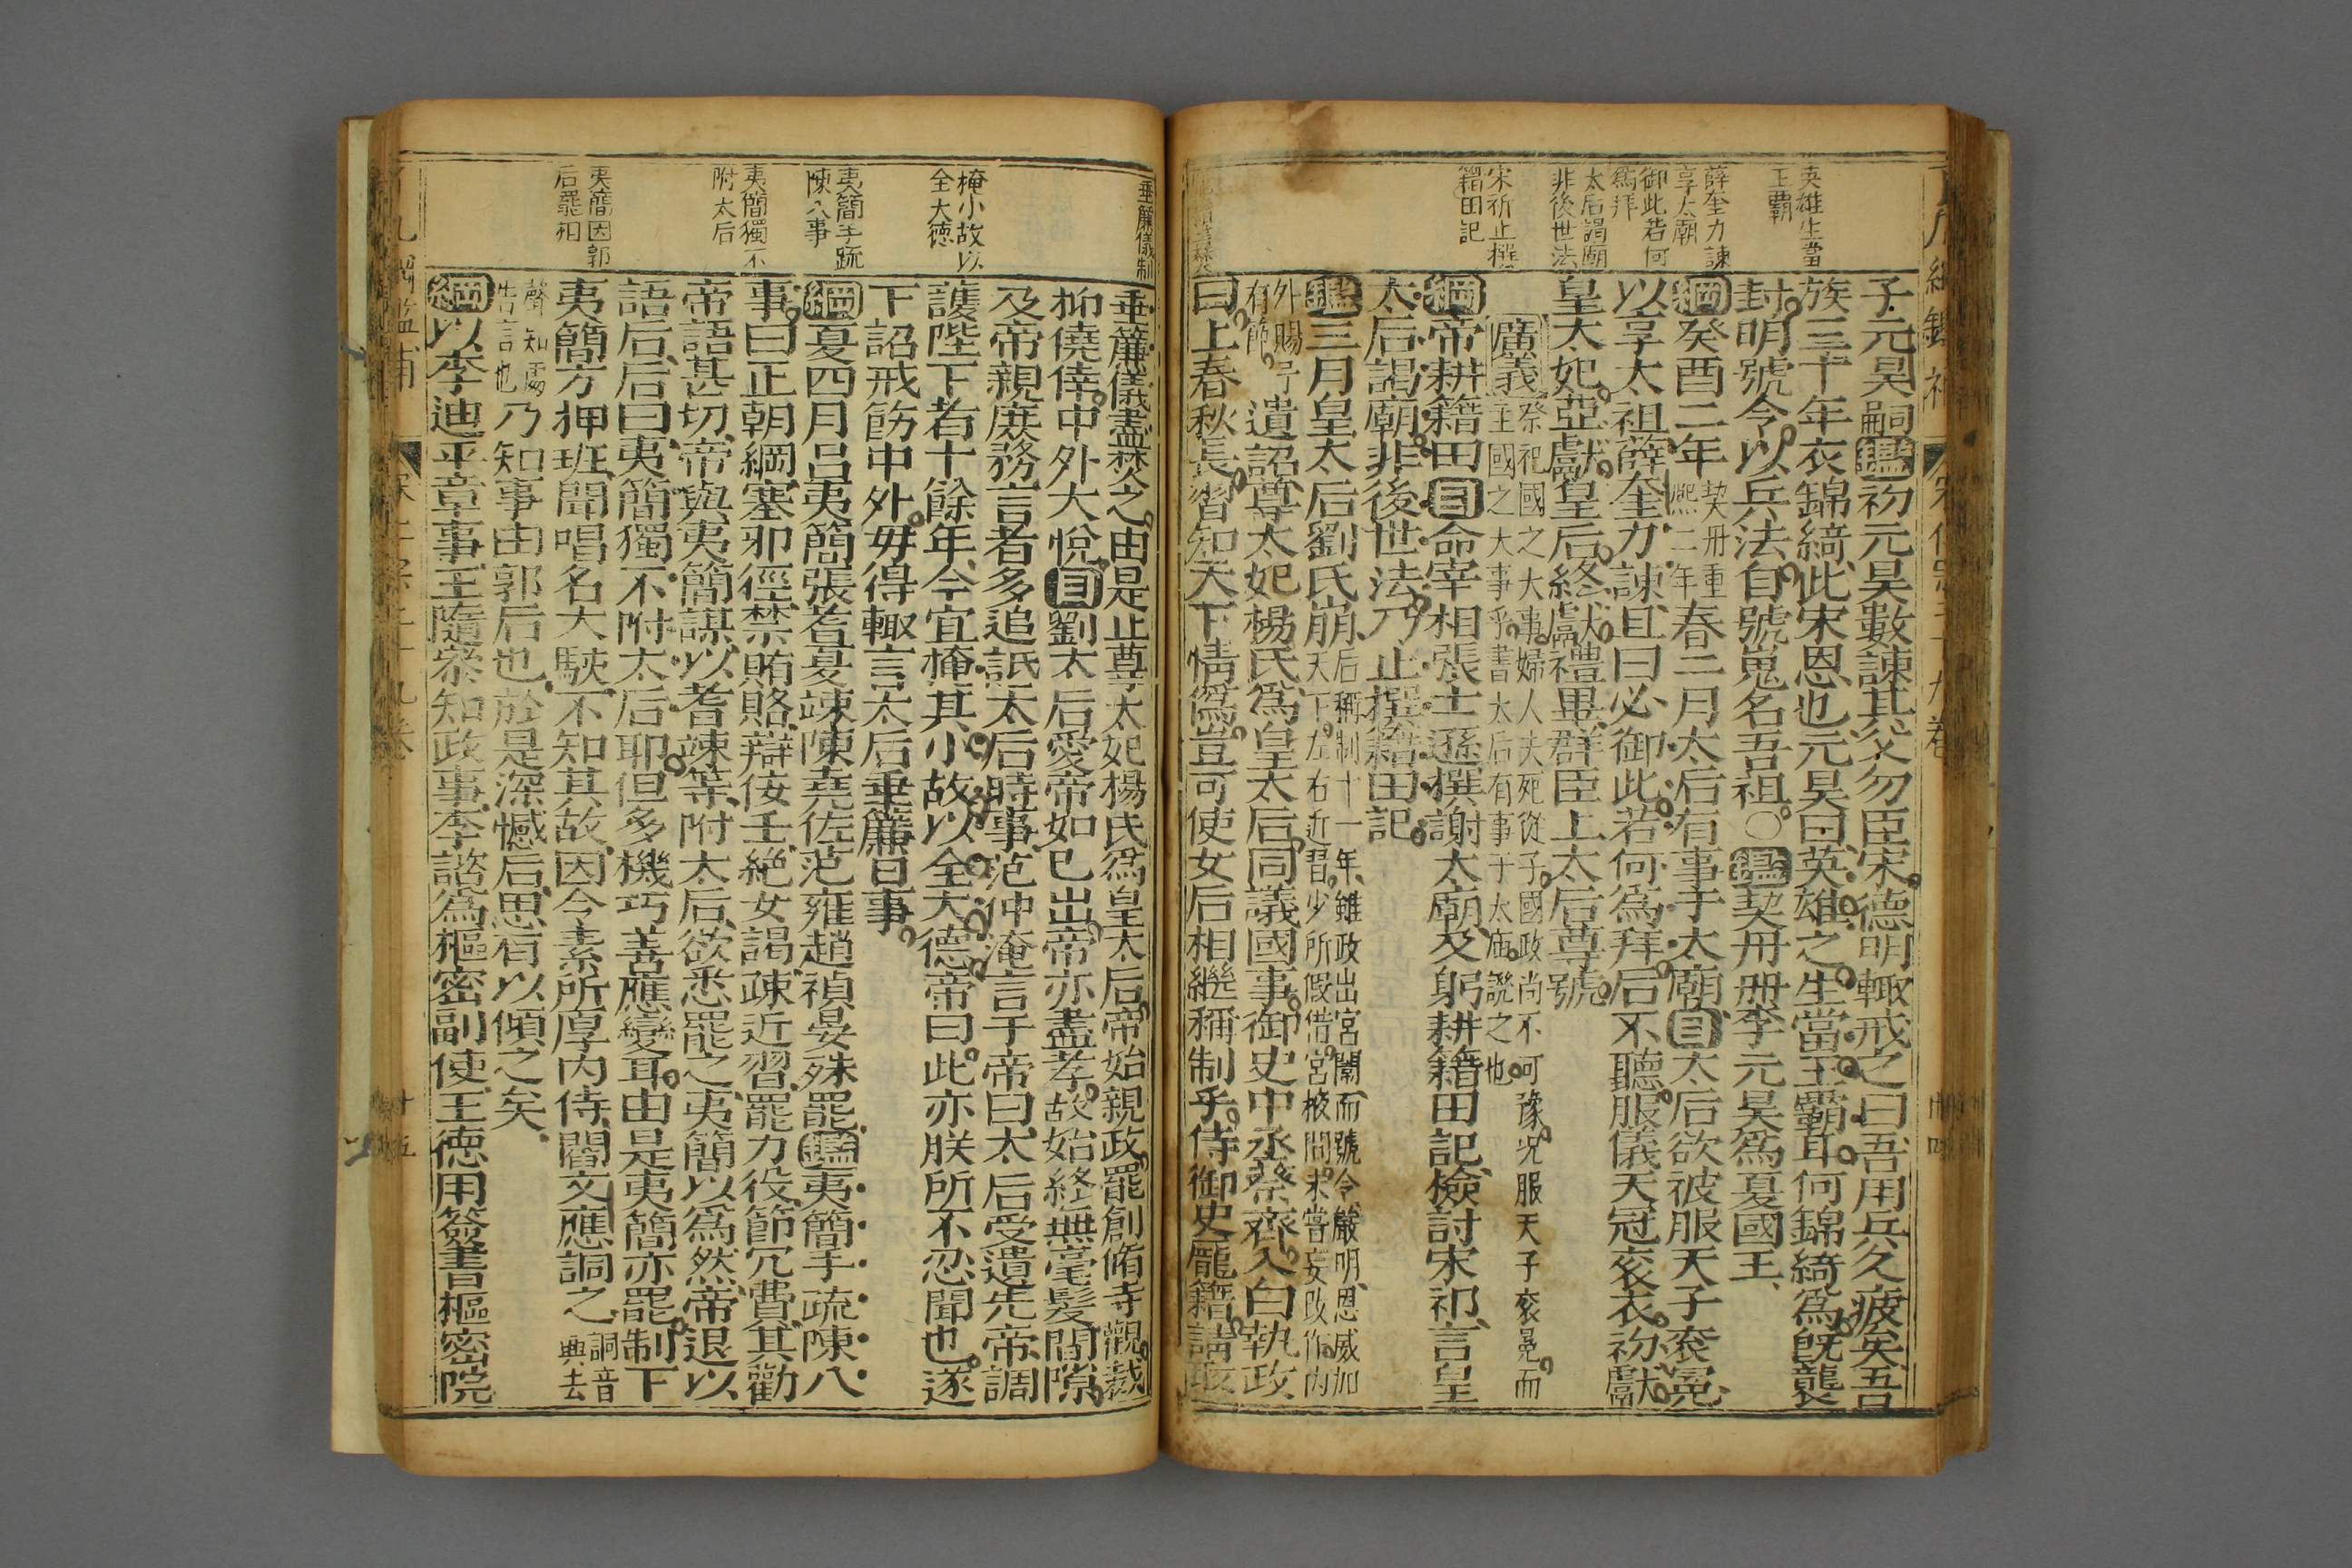 英雄生當
王霸
薛奎力諫
享太廟
御此若何
爲拜
太后謁廟
非後世法
宋祈止撰
籍田記
子元昊嗣鑑初元昊數諫其父勿臣宋德明輙戒之曰吾用兵久疲矣吾
族三十年衣錦綺此宋恩也元昊曰英雄之生當王霸耳何錦綺爲旣襲
封明號令以兵法自號嵬名吾祖〇鑑契丹册李元昊爲夏國王
綱癸酉二年契丹重熈二年春二月太后有事于太廟目太后欲被服天子衮冕
以享太祖薛奎力諫且曰必御此若何為拜后不聽服儀天冠衮衣初獻
皇太妃亞獻皇后終獻禮畢群臣上太后尊號
廣義祭祀國之大事婦人夫死從子國政尚不可豫况服天子衮冕而
主國之大事乎書太后有事于太庙譏之也
綱帝耕籍田目命宰相張士遜撰謝太廟及躬耕籍田記檢討宋祁言皇
太后謁廟非後世法乃止撰籍田記
鑑三月皇太后劉氏崩后稱制十一年雖政出宮闈而號令嚴明恩威加
天下左右近習少所假借宮掖間未嘗妄改作内
外賜予有節遺詔尊太妃楊氏爲皇太后同議國事御史中丞蔡齊入白執政
曰上春秋長習知天下情僞豈可使女后相繼稱制乎侍御史龐籍請取
垂簾儀制
掩小故以
全大德
夷簡手疏
陳八事
夷簡獨不
附太后
夷簡因郭
后罷相
垂簾儀盡焚之由是止尊太妃楊氏爲皇太后帝始親政罷創脩寺觀裁
抑僥倖中外大悅目劉太后愛帝如已出帝亦盡孝故始終無毫髮間隙
及帝親庶務言者多追詆太后時事范仲淹言于帝曰太后受遺先帝調
護陛下者十餘年今宜掩其小故以全大德帝曰此亦朕所不忍聞也遂
下詔戒飭中外毋得輙言太后垂簾日事
綱夏四月呂夷簡張耆夏竦陳堯佐范雍趙禎晏殊罷鑑夷簡手疏陳八
事曰正朝綱塞邪徑禁賄賂辯佞壬絶女謁疎近習罷力役節冗費其勸
帝語甚切帝與夷簡謀以耆竦等附太后欲悉罷之夷簡以為然帝退以
語后后曰夷簡獨不附太后耶但多機巧善應變耳由是夷簡亦罷制下
夷簡方押班聞唱名大駭不知其故因令素所厚内侍閻文應詗之詗音與去
聲知處告言也乃知事由郭后也於是深憾后思有以傾之矣
綱以李迪平章事王隨叅知政事李諮為樞密副使王德用簽書樞密院